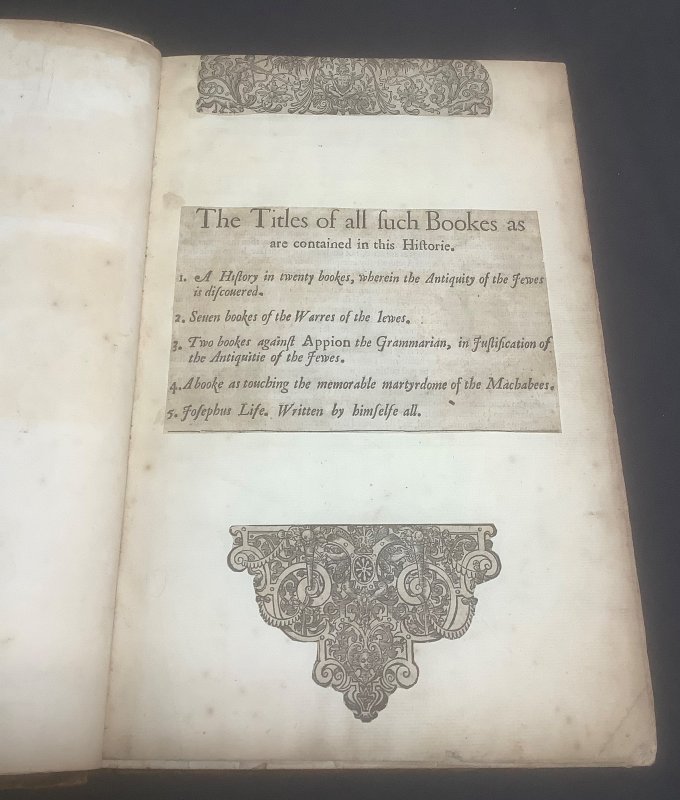 The Titles of all ſuch Bookes as
are contained in this Hiſtorie.
1. A Hiſtory in twenty bookes, wherein the Antiquity of the Jewes
is diſcouered.
2. Seuen bookes of the Warres of the Iewes.
3. Two bookes againſt Appion the Grammarian, in Juſtification of
the Antiquitie of the Jewes.
4. A booke as touching the memorable martyrdome of the Machabees.
5. Joſephus Life. Written by himſelfe all.